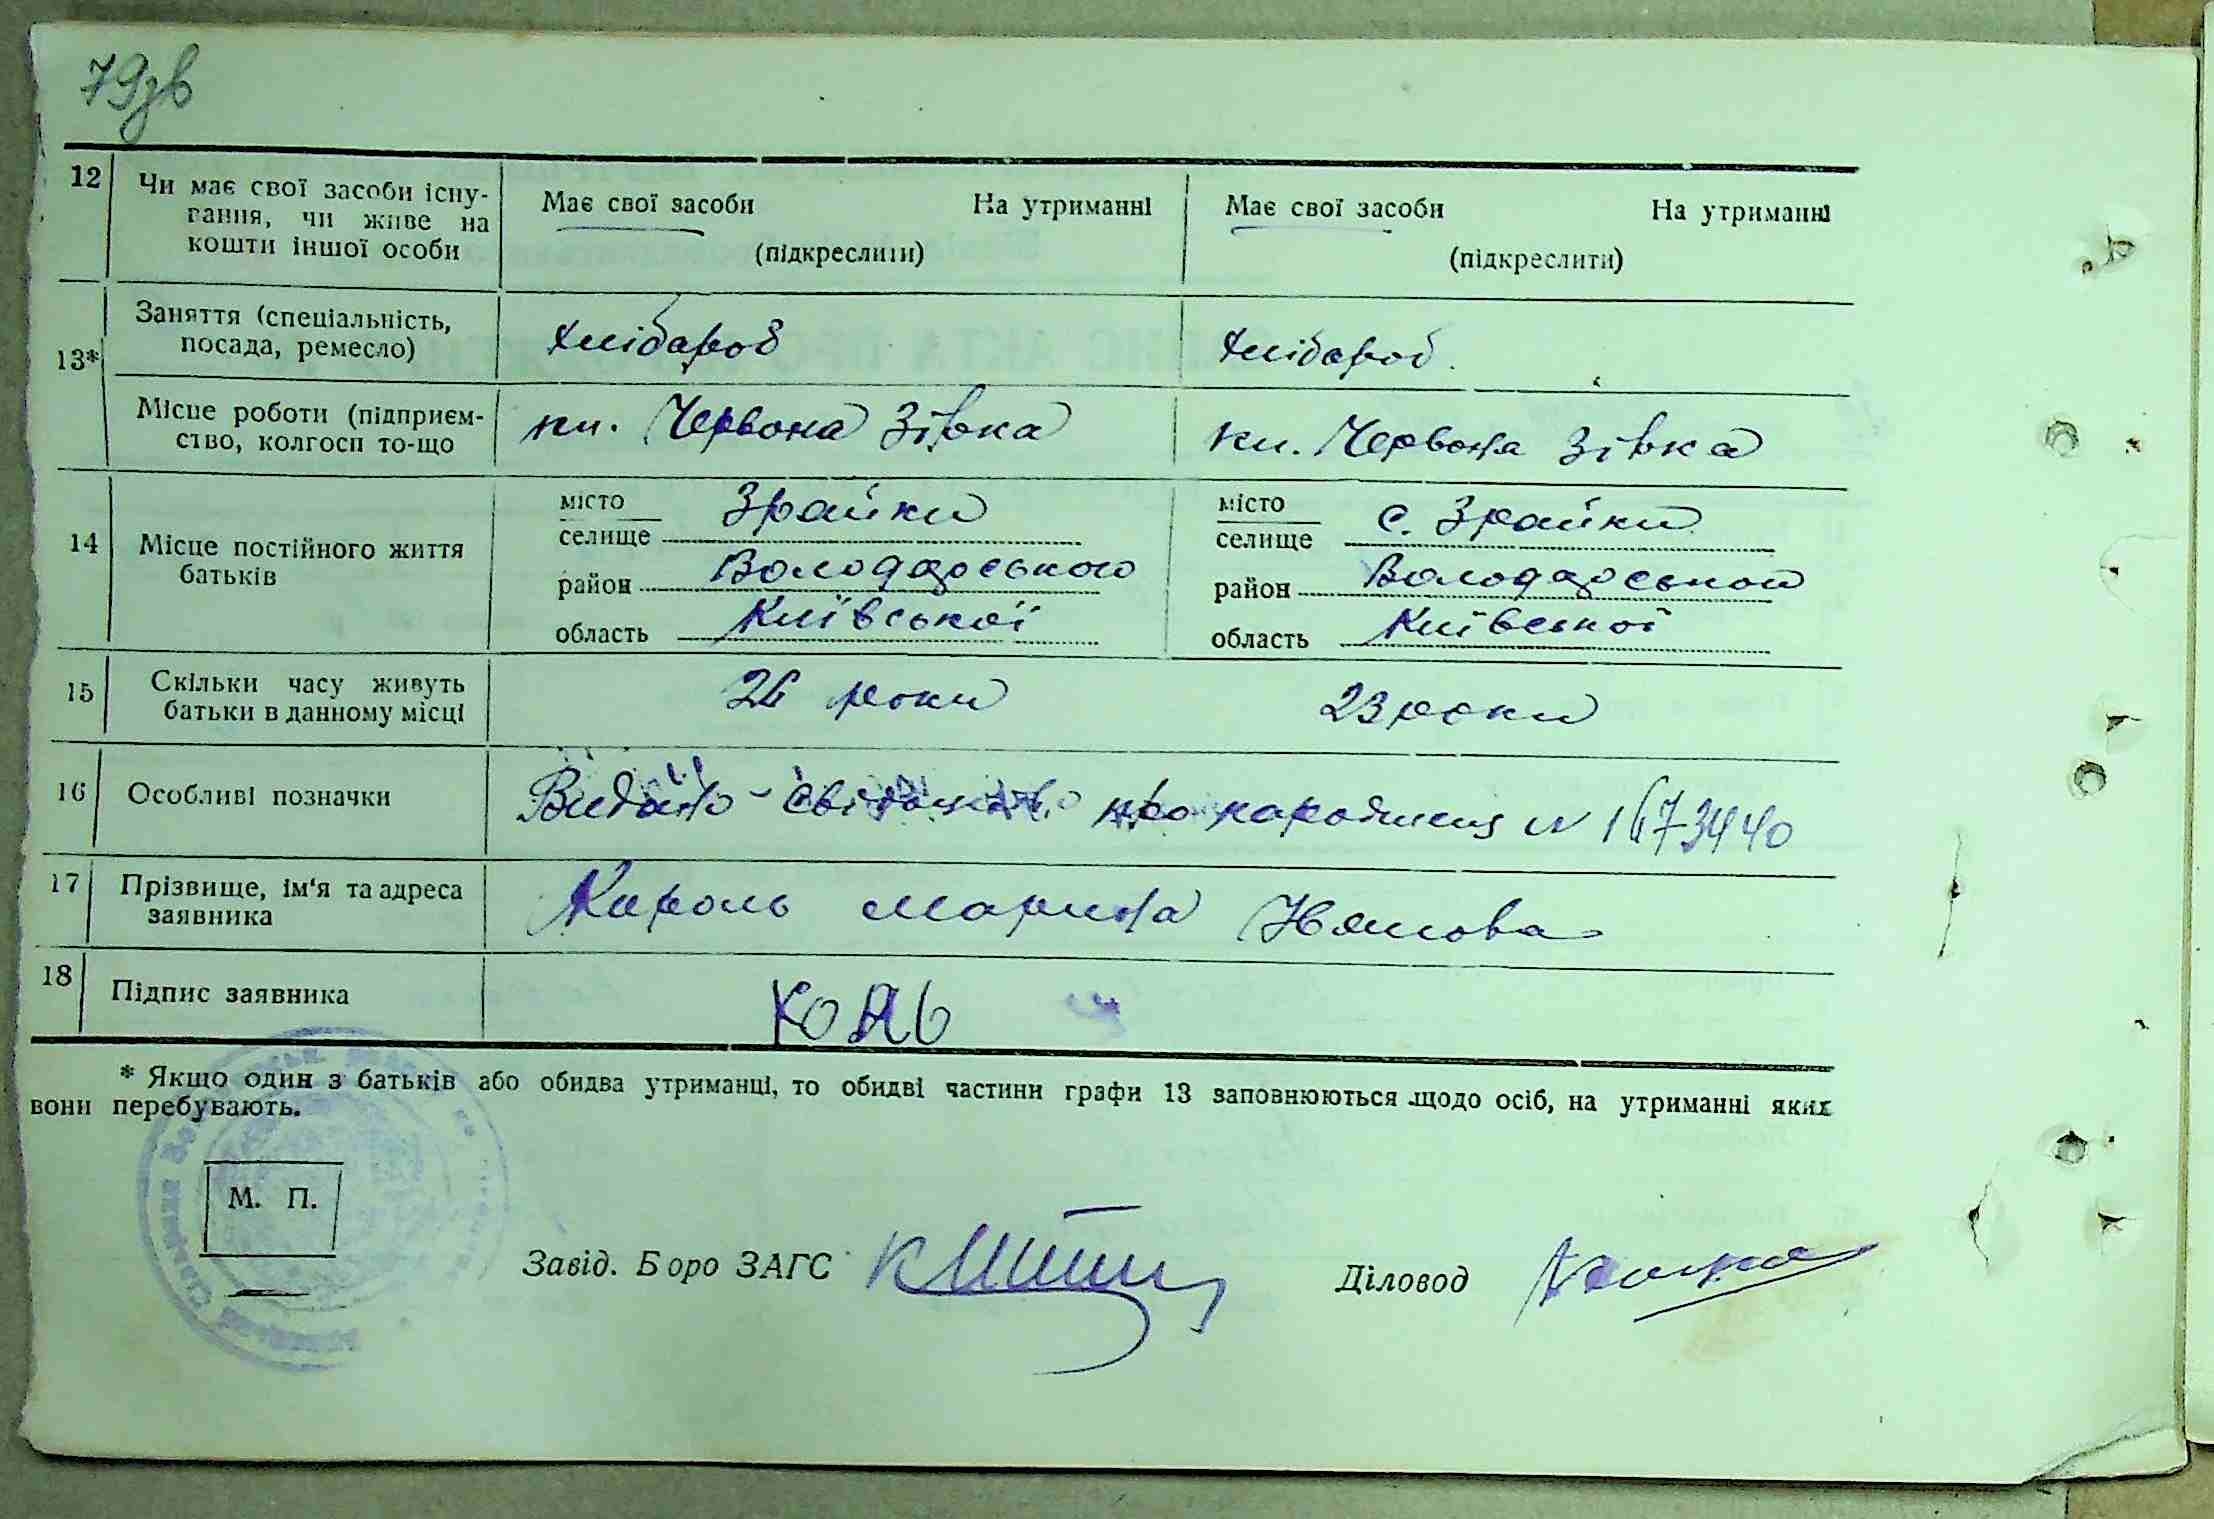 79зв
12 Чи має свої засоби існу- Має свої засоби На утриманні Має свої засоби На утриманні
вання, чи живе на
кошти іншої особи (підкреслити) (підкреслити)
13* Заняття (спеціальність, хлібороб хлібороб.
посада, ремесло)
Місце роботи (підприєм- кл. Червона Зірка кл. Червона Зірка
ство, колгосп то-що
14 Місце постійного життя батьків
місто Зрайки місто с. Зрайки
селище селище
район Володарського район Володарського
область Київської область Київської
15 Скільки часу живуть 26 роки 23 роки
батьки в данному місці
16 Особливі позначки Видано свідоцтво про народження N 1673440
17 Прізвище, ім'я та адреса Король Марина
заявника
18 Підпис заявника
* Якщо один з батьків або обидва утриманці, то обидві частини графи 13 заповнюються щодо осіб, на утриманні яких
вони перебувають.
М. П.
Завід. Боро ЗАГС Діловод